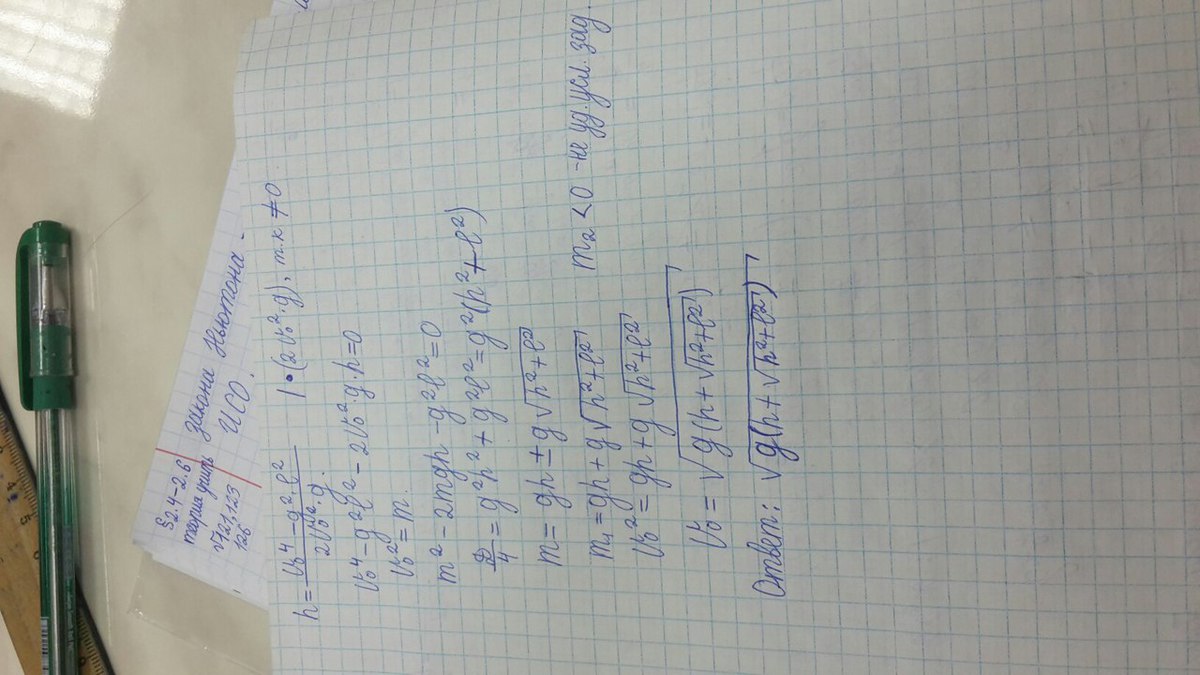 §2.4-2.6
теория учить
√121,123
126
Законы Ньютона -
ИСО.
h = (v₀⁴ - g²ℓ²) / (2v₀²·g) | · (2v₀²·g), т.к ≠ 0.
v₀⁴ - g²ℓ² - 2v₀²·g·h = 0
v₀² = m.
m² - 2mgh - g²ℓ² = 0
D/4 = g²h² + g²ℓ² = g²(h² + ℓ²)
m = gh ± g√(h² + ℓ²)
m₁ = gh + g√(h² + ℓ²) m₂ < 0 - не уд. усл. зад.
v₀² = gh + g√(h² + ℓ²)
v₀ = √(g(h + √(h² + ℓ²)))
Ответ: √(g(h + √(h² + ℓ²)))